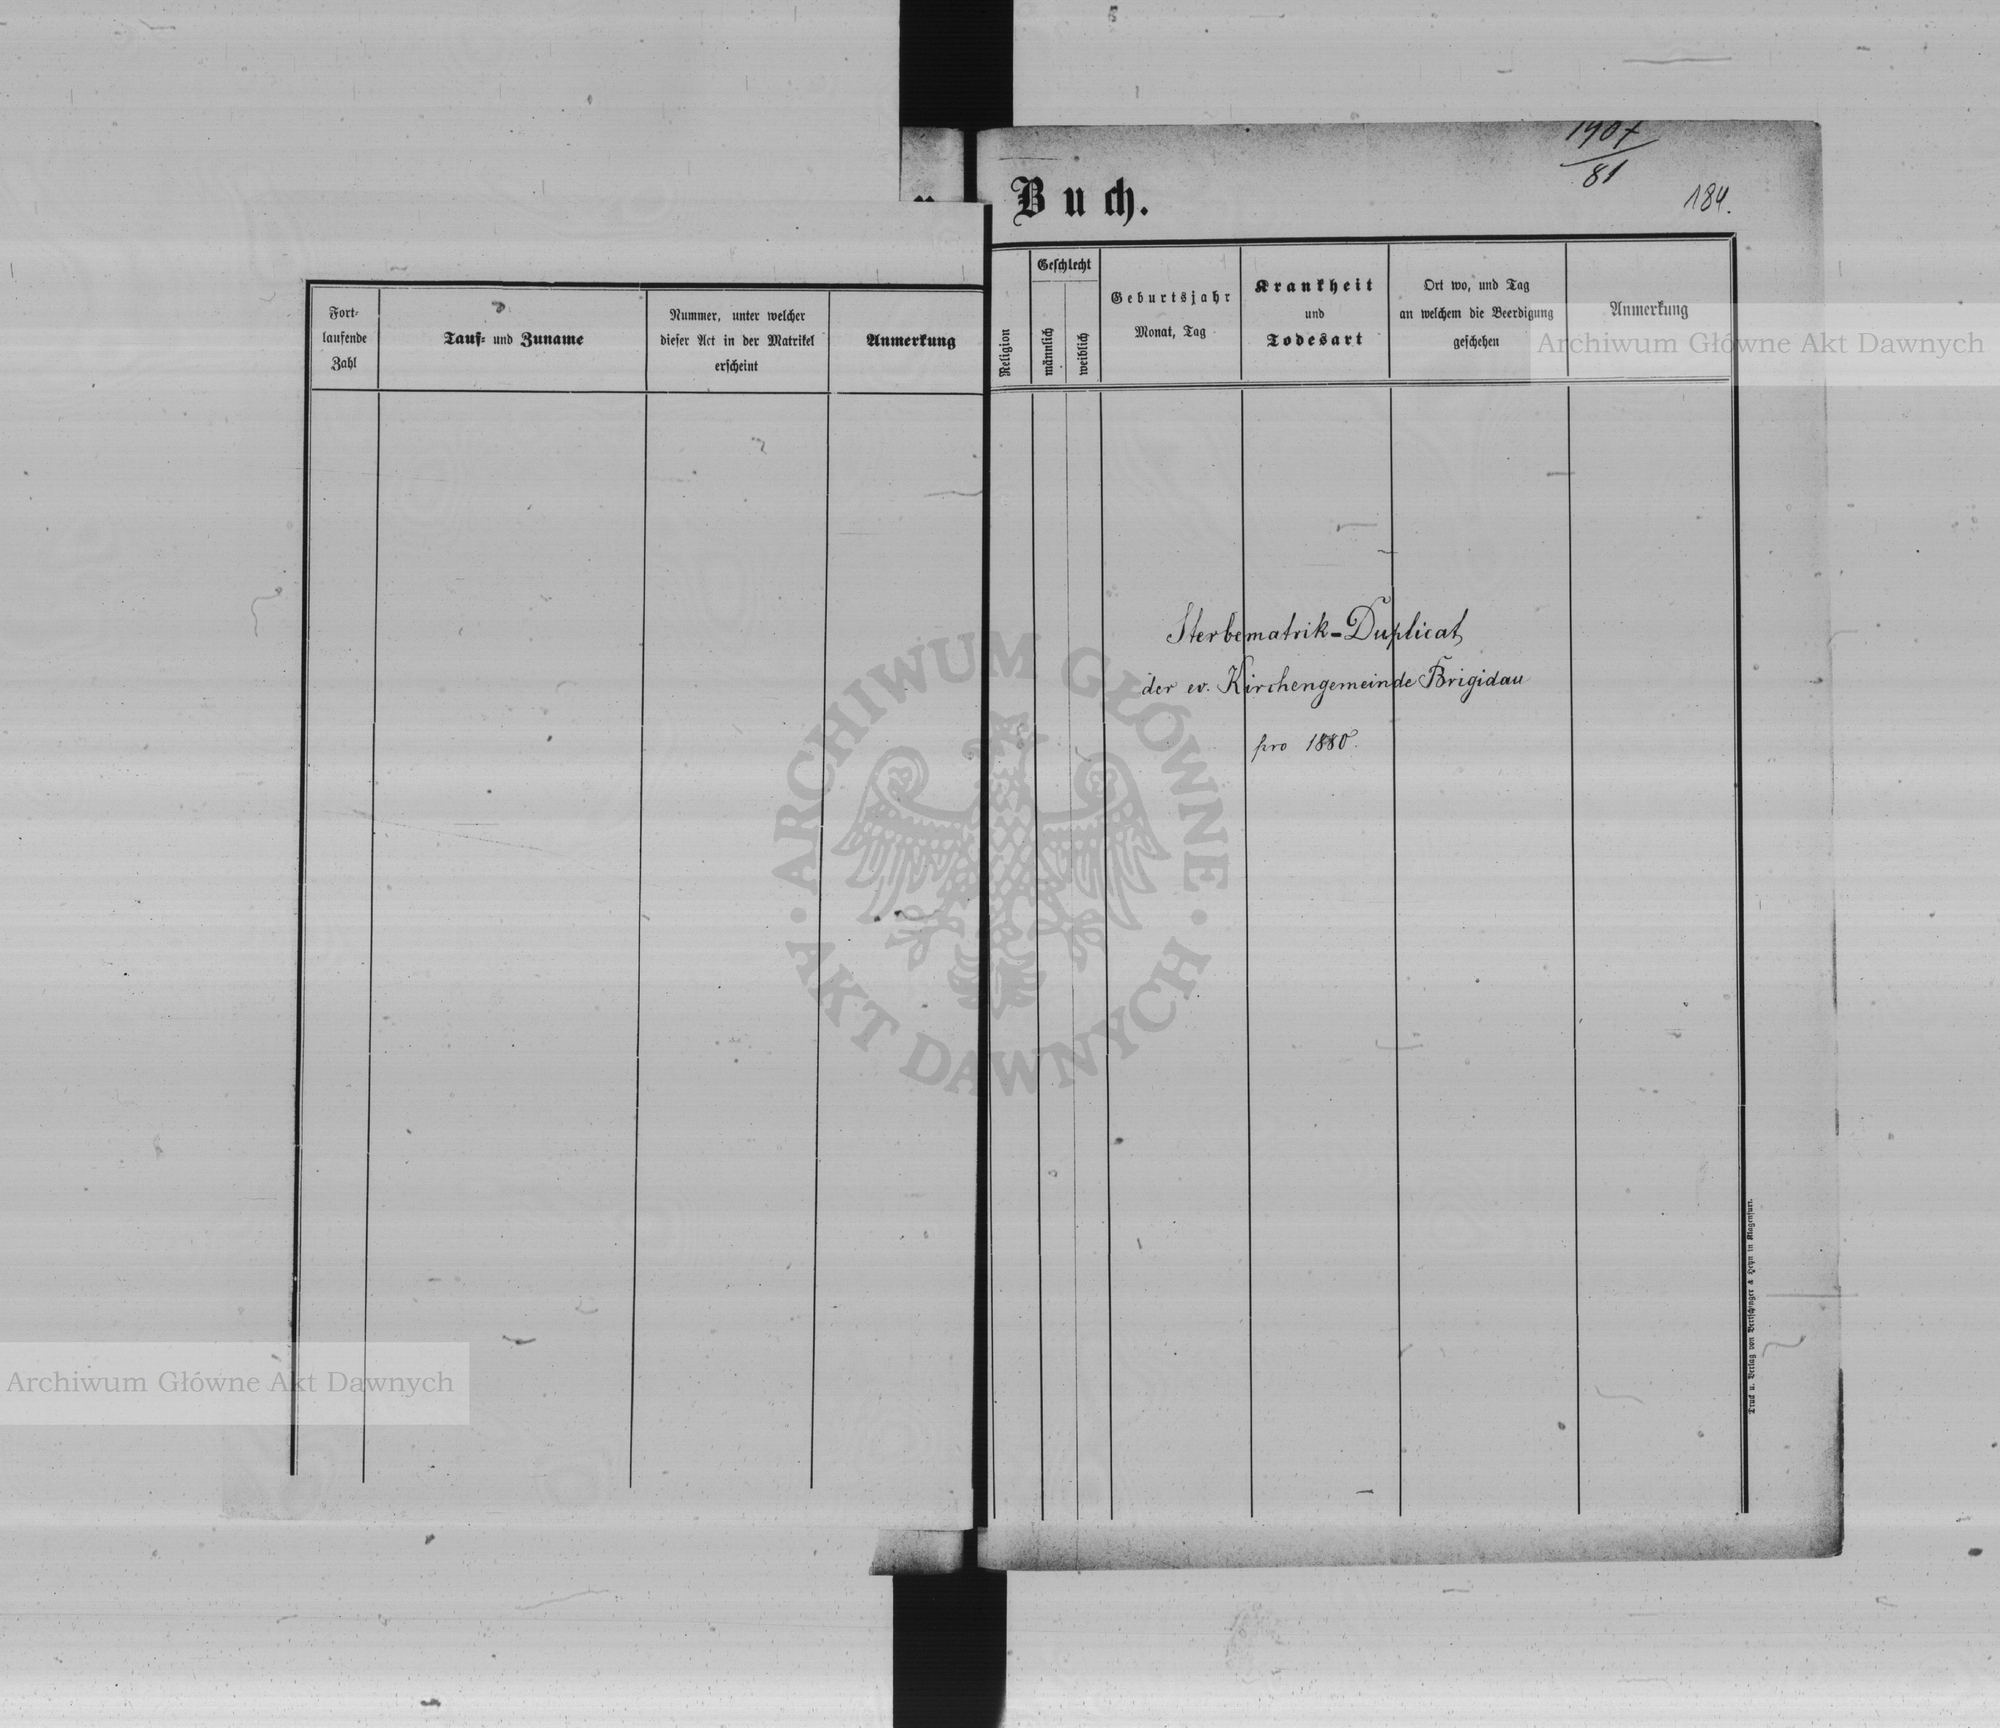 Fort-
laufende
Zahl
Tauf- und Zuname
Nummer, unter welcher
dieser Act in der Matrikel
erscheint
Anmerkung
1907
81
184.
Buch.
Religion
Geschlecht
männlich
weiblich
Geburtsjahr
Monat, Tag
Krankheit
und
Todesart
Ort wo, und Tag
an welchem die Beerdigung
geschehen
Anmerkung
Archiwum Główne Akt Dawnych
Sterbematrik-Duplicat
der ev. Kirchengemeinde Brigidau
pro 1880.
ARCHIWUM GŁÓWNE
AKT DAWNYCH
Druck u. Verlag von Bertschinger & Heyn in Klagenfurt.
Archiwum Główne Akt Dawnych